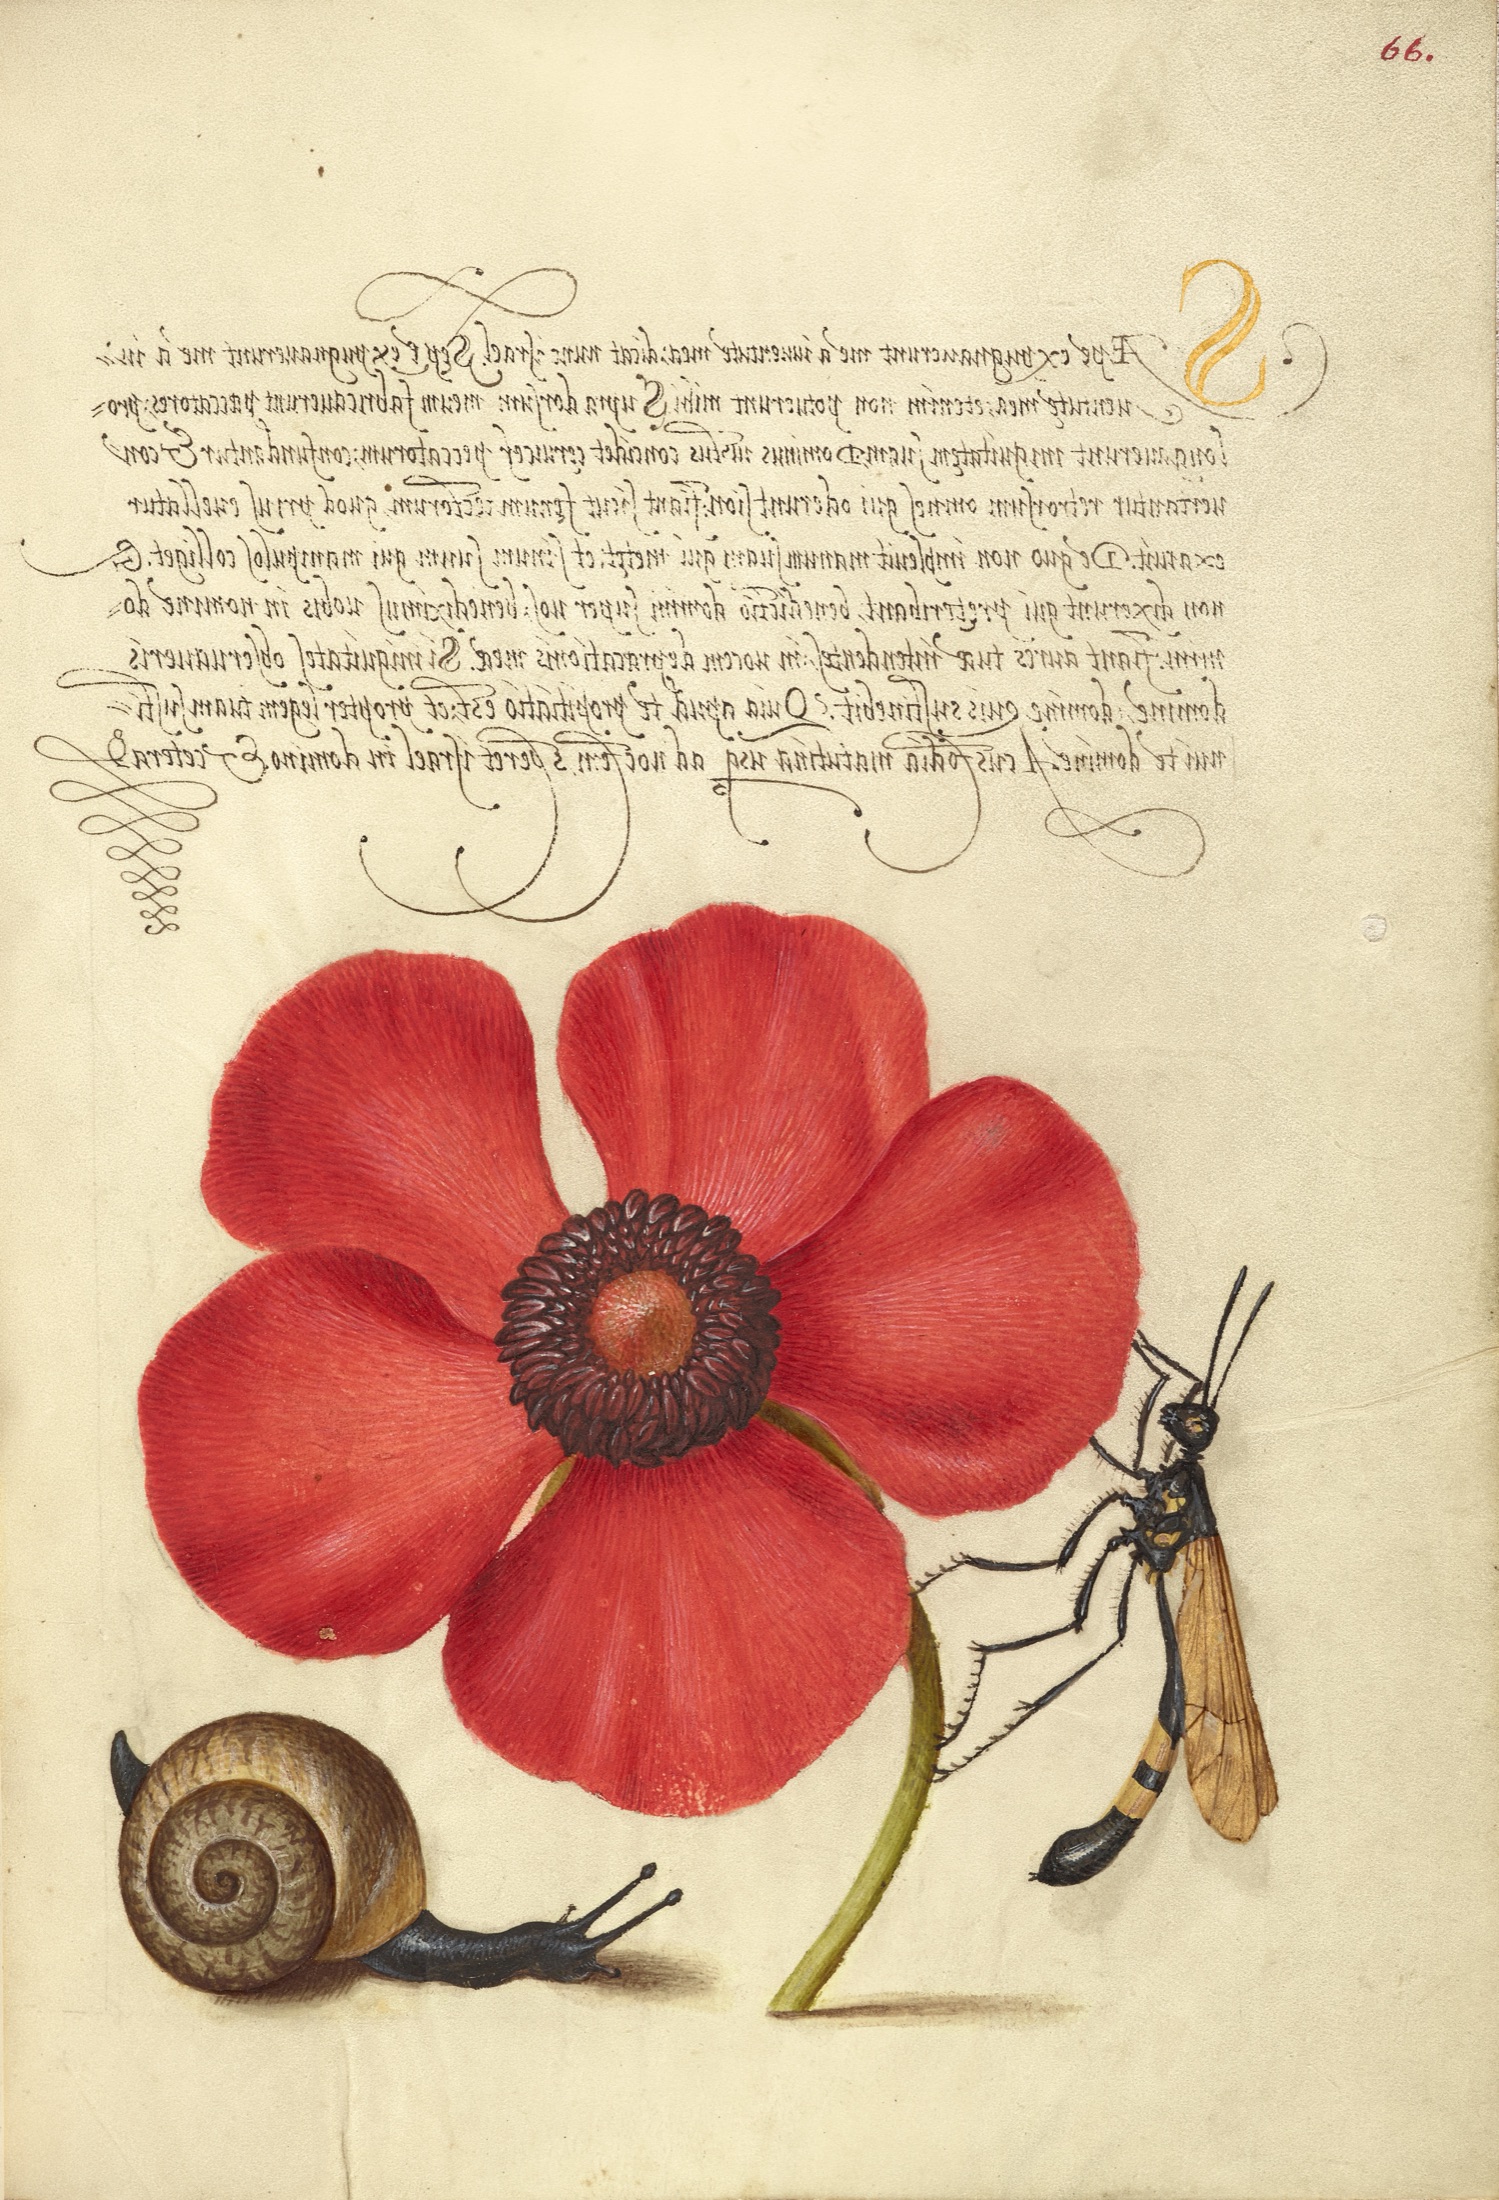 66.
SÆpe expugnauerunt me à iuuentute mea: dicat nunc israel. Sepe expugnauerunt me à iu=
uentute mea: etenim non potuerunt mihi Supra dorsum meum fabricauerunt pæccatores: pro=
longauerunt iniquitatem suam. Dominus iustus concidet ceruices peccatorum: confundantur & con
uertantur retrorsum omnes qui oderunt sion. fiant sicut fenum tectorum quod prius euellatur
exaruit. De quo non impleuit manum suam qui metet: et sinum suum qui manipulos colliget. &
non dixerunt qui preteribant, benedictio domini super uos: benediximus uobis in nomine do=
mini. fiant aures tuæ intendentes: in uocem depracationis meæ. Si iniquitates obseruaueris
domine: domine quis sustinebit? Quia apud te propitiatio est: et propter legem tuam susti=
nui te domine. A custodia matutina usq ad noctem: speret israel in domino. & cetera